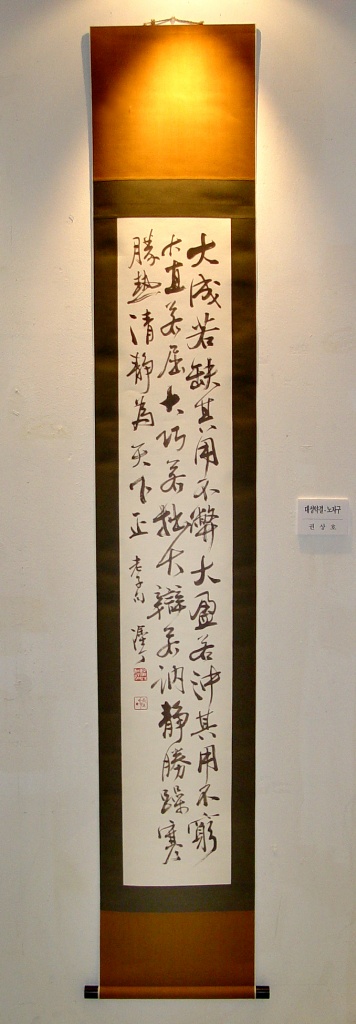 大成若缺其用不弊大盈若沖其用不窮
大直若屈大巧若拙大辯若訥靜勝躁寒
勝熱清靜為天下正 老子句
대성약결-노자구
권 상 호